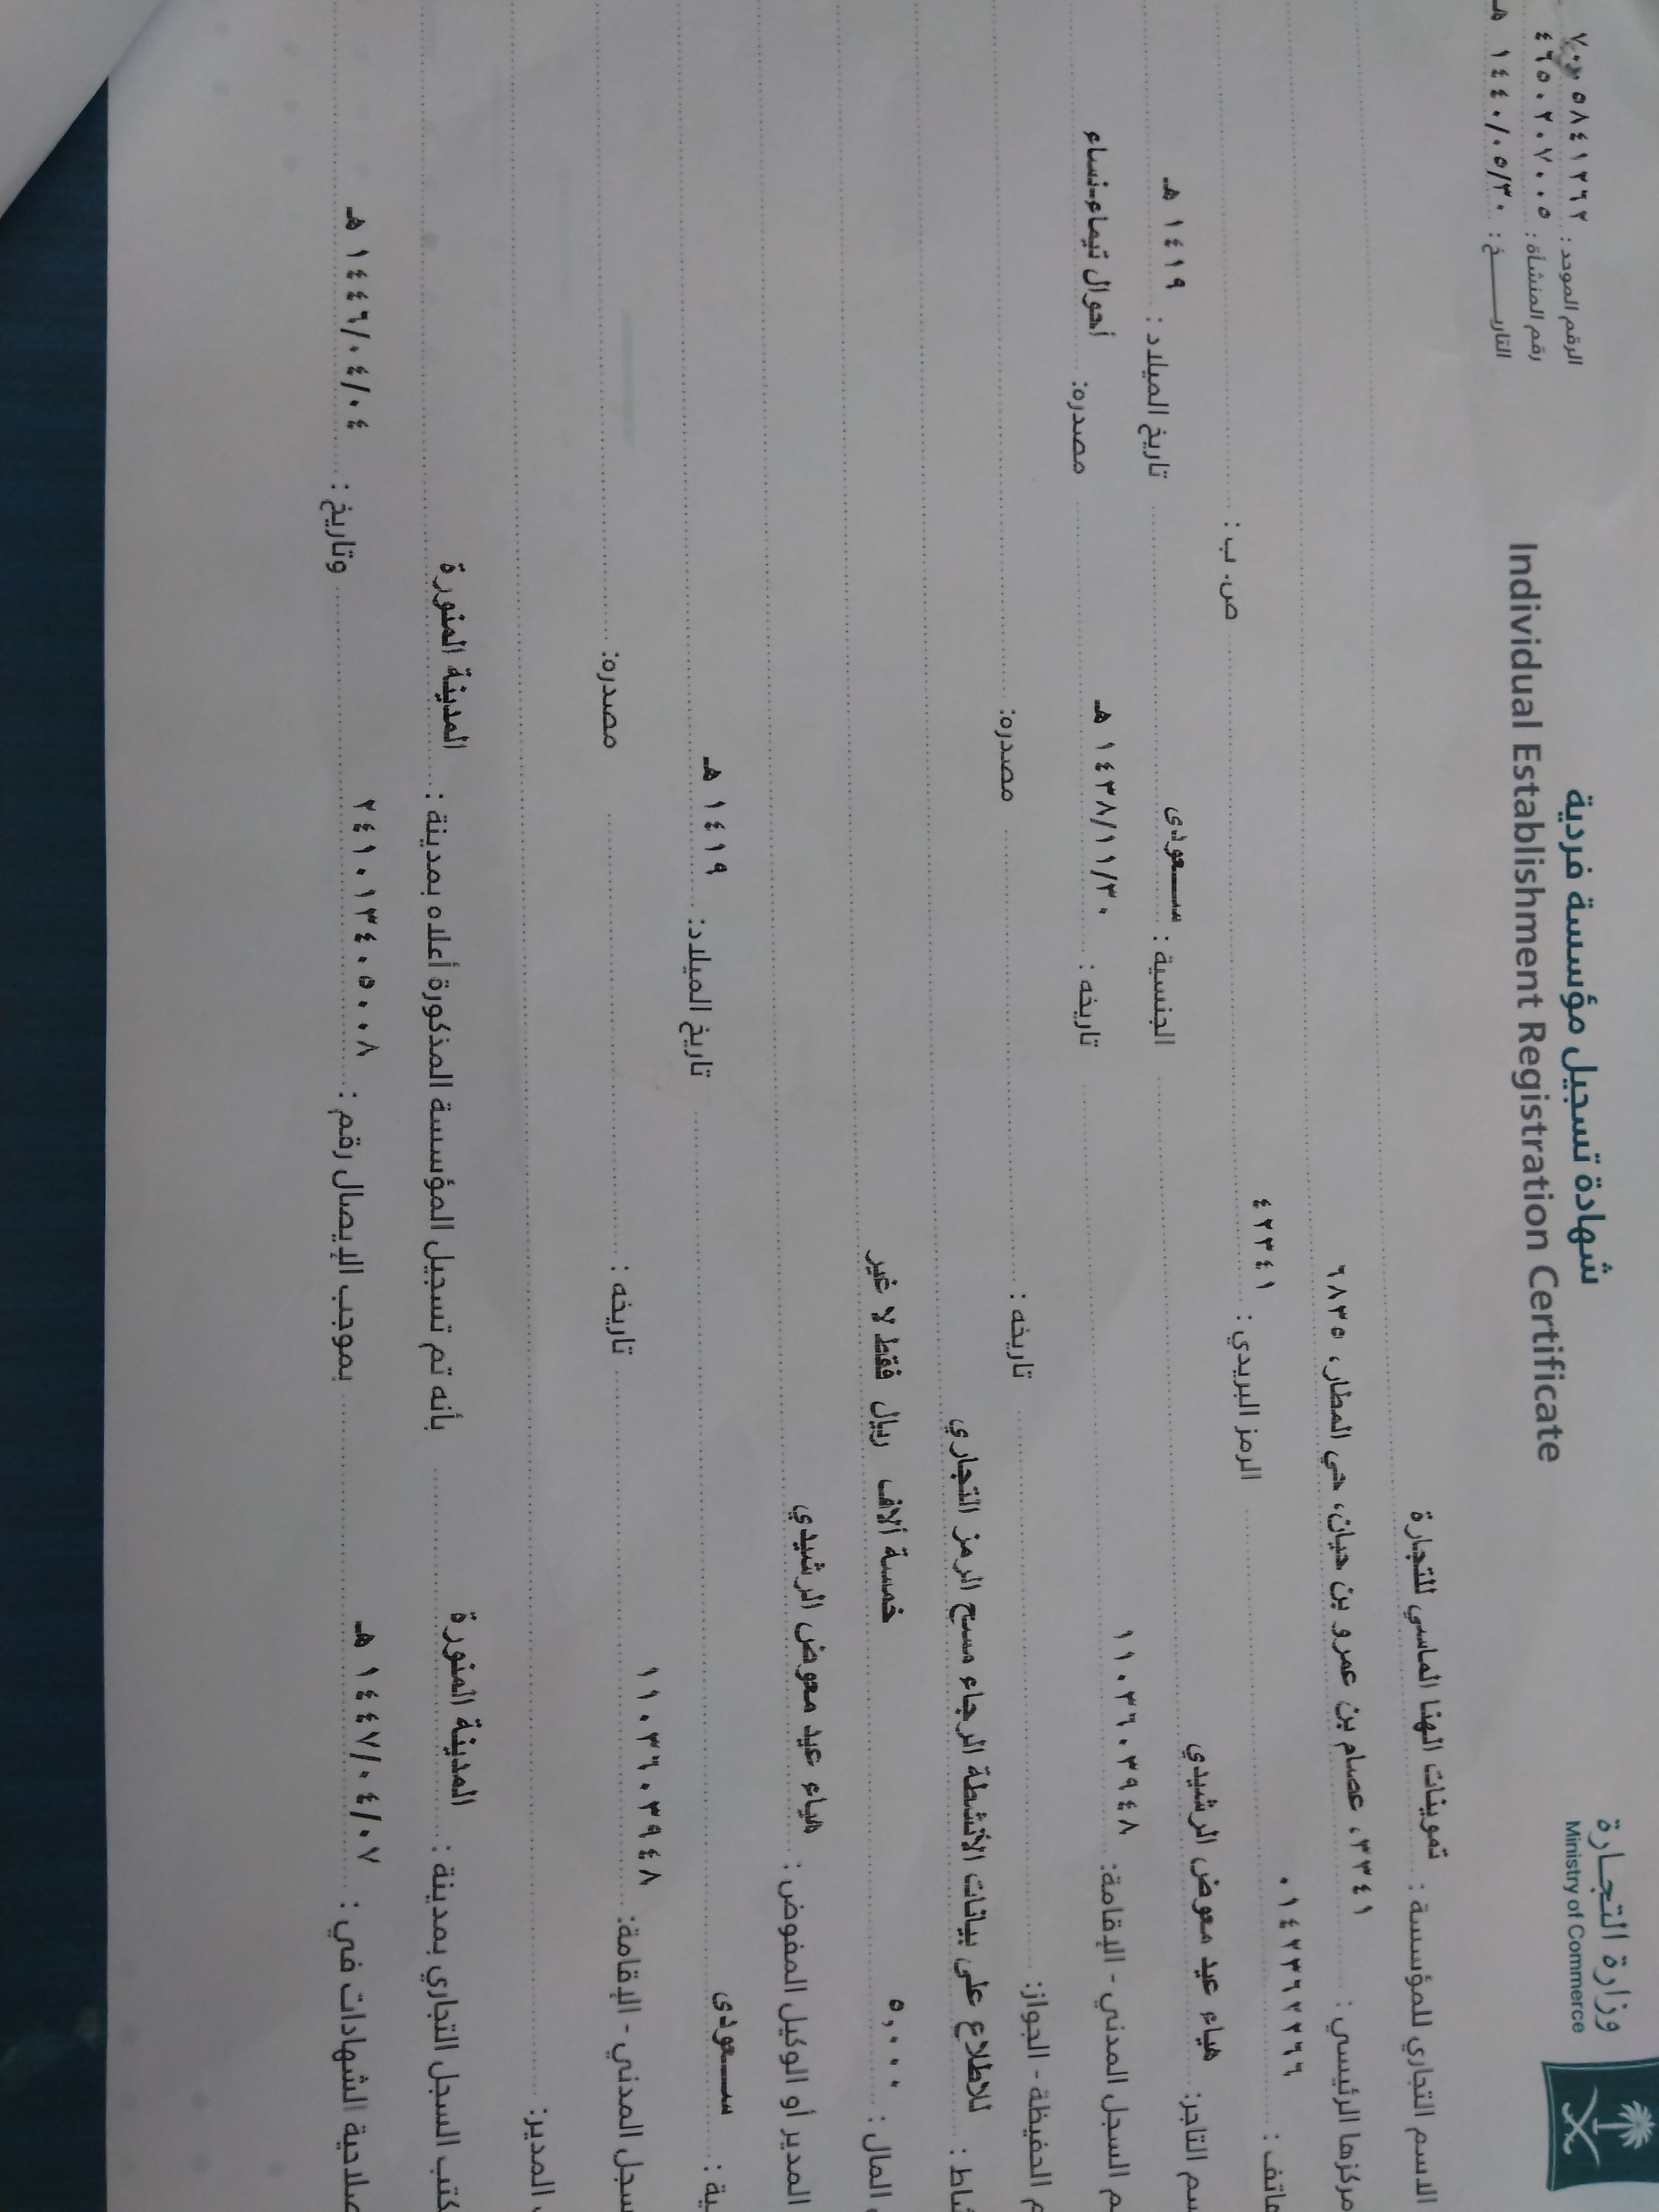 وزارة التجـارة
Ministry of Commerce
شهادة تسجيل مؤسسة فردية
Individual Establishment Registration Certificate
الرقم الموحد :
رقم المنشأة : ٤٦٥٠٢٠٧٠٠٥
التاريـــــخ : ١٤٤٠/٠٥/٣٠ هـ
الاسم التجاري للمؤسسة : تموينات الهنا الماسي للتجارة
مركزها الرئيسي : ٣٣٤١ ، عصام بن عمرو بن حيان، حي المطار، ٦٨٣٥
هاتف : ٠١٤٢٣٦٢٢٦٦ الرمز البريدي : ٤٢٣٤١ ص. ب :
سم التاجر: هياء عيد معوض الرشيدي الجنسية : سـعودى تاريخ الميلاد : ١٤١٩ هـ
م السجل المدني - الإقامة: ١١٠٣٦٠٣٩٤٨ تاريخه : ١٤٣٨/١١/٣٠ هـ مصدره: أحوال تيماء-نساء
م الحفيظة - الجواز: تاريخه : مصدره:
شاط : للاطلاع على بيانات الأنشطة الرجاء مسح الرمز التجاري
المال : ٥,٠٠٠ خمسة آلاف ريال فقط لا غير
المدير أو الوكيل المفوض : هياء عيد معوض الرشيدي
ية : سـعودى تاريخ الميلاد: ١٤١٩ هـ
سجل المدني - الإقامة: ١١٠٣٦٠٣٩٤٨ تاريخه : مصدره:
المدير:
كتب السجل التجاري بمدينة : المدينة المنورة بأنه تم تسجيل المؤسسة المذكورة أعلاه بمدينة : المدينة المنورة
صلاحية الشهادات في : ١٤٤٧/٠٤/٠٧ هـ بموجب الإيصال رقم : ٢٤١٠١٣٤٠٥٠٠٨ وتاريخ : ١٤٤٦/٠٤/٠٤ هـ